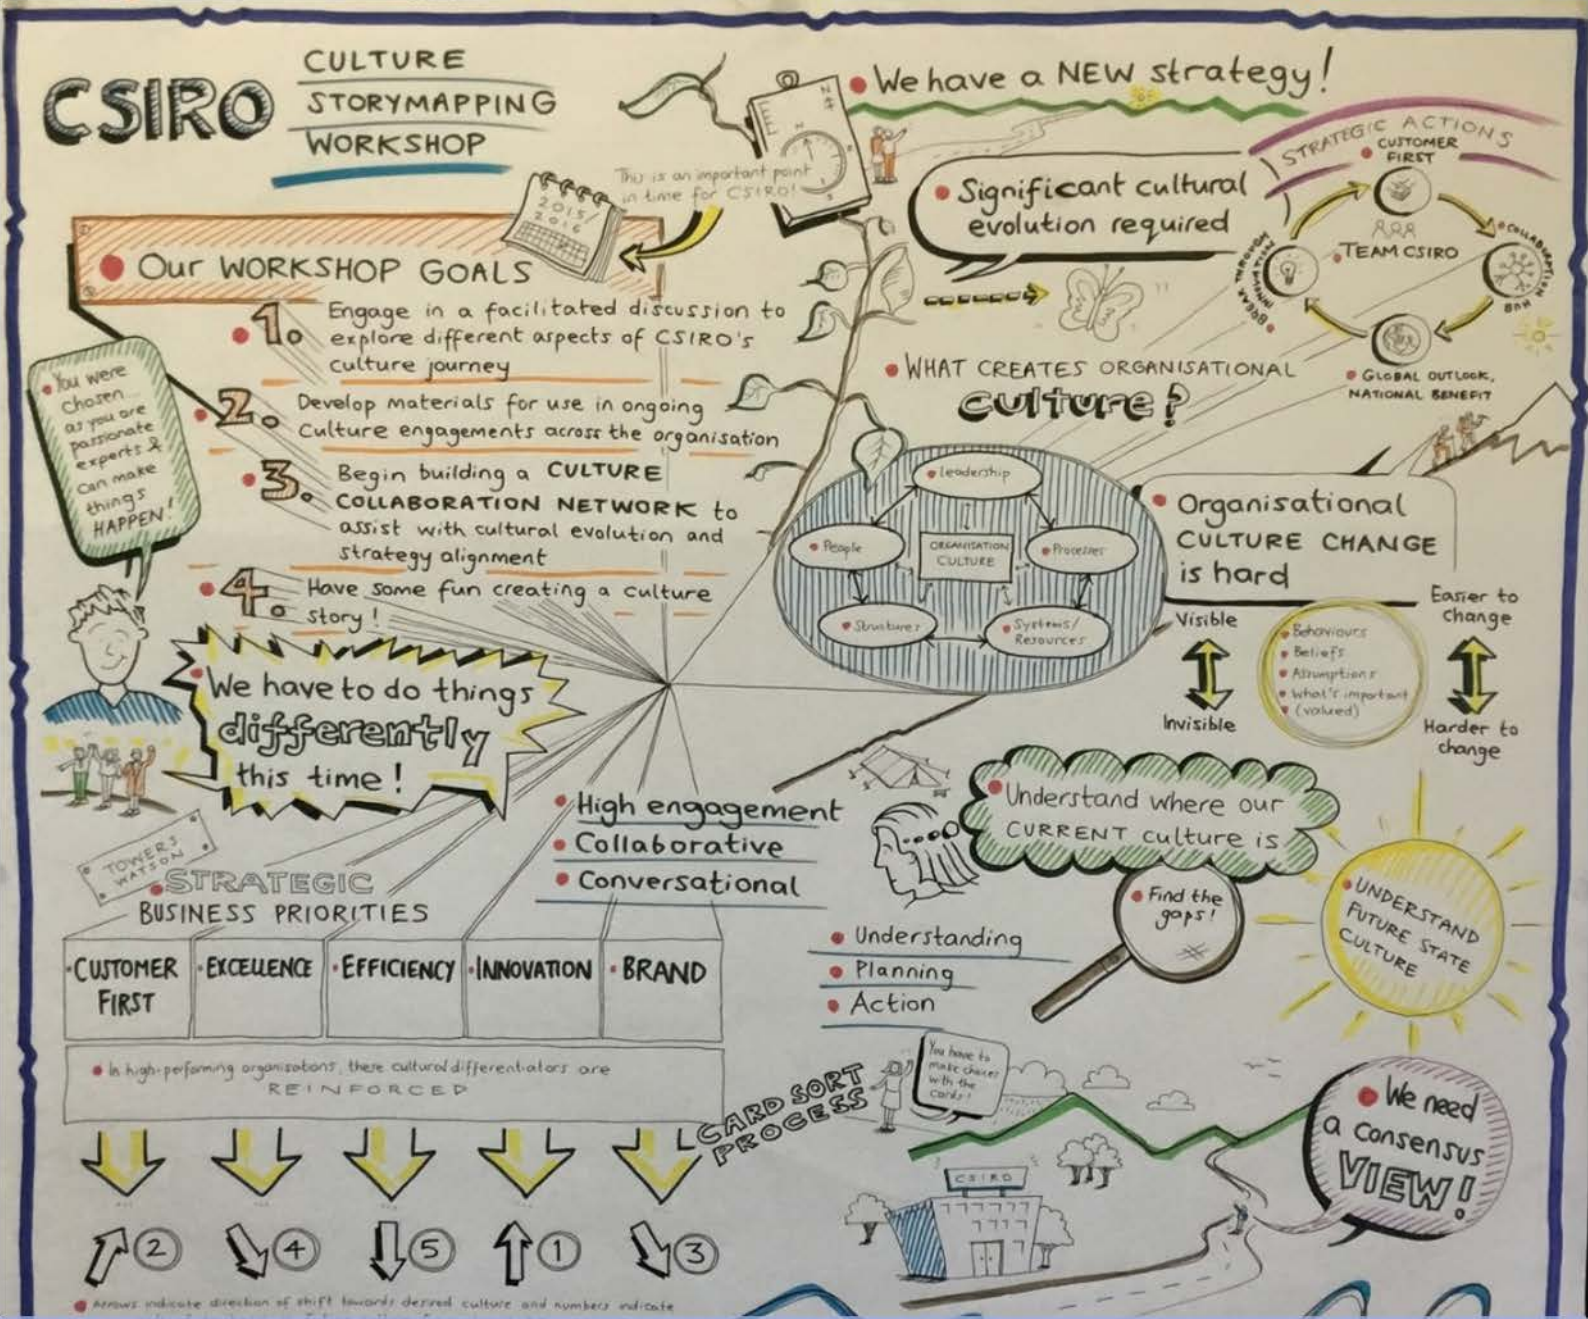 CSIRO
CULTURE
STORYMAPPING
WORKSHOP
This is an important point
in time for CSIRO!
2015/
2016
Our WORKSHOP GOALS
1. Engage in a facilitated discussion to
explore different aspects of CSIRO's
culture journey
2. Develop materials for use in ongoing
Culture engagements across the organisation
3. Begin building a CULTURE
COLLABORATION NETWORK to
assist with cultural evolution and
strategy alignment
4. Have some fun creating a culture
story!
You were
chosen...
as you are
passionate
experts &
can make
things
HAPPEN!
We have to do things
differently
this time!
High engagement
Collaborative
Conversational
TOWERS
WATSON
STRATEGIC
BUSINESS PRIORITIES
CUSTOMER
FIRST
EXCELLENCE
EFFICIENCY
INNOVATION
BRAND
In high-performing organisations, these cultural differentiators are
REINFORCED
2
4
5
1
3
Arrows indicate direction of shift towards desired culture and numbers indicate
We have a NEW strategy!
Significant cultural
evolution required
STRATEGIC ACTIONS
CUSTOMER
FIRST
TEAM CSIRO
COLLABORATION HUB
BREAK THROUGH
INNOVATION
GLOBAL OUTLOOK,
NATIONAL BENEFIT
WHAT CREATES ORGANISATIONAL
culture?
Leadership
People
ORGANISATION
CULTURE
Processes
Structures
Systems/
Resources
Organisational
CULTURE CHANGE
is hard
Visible
Invisible
Behaviours
Beliefs
Assumptions
What's important
(valued)
Easier to
change
Harder to
change
Understand where our
CURRENT culture is
Find the
gaps!
UNDERSTAND
FUTURE STATE
CULTURE
Understanding
Planning
Action
CARD SORT
PROCESS
You have to
make choices
with the
cards!
CSIRO
We need
a consensus
VIEW!